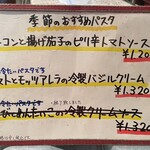 季節のおすすめパスタ
コンと揚げ茄子のピリ辛トマトソース
¥1,20
冷たいパスタです
マトとモッツアレラの冷製バジルクリーム
¥1,320
冷たいパスタです
冷製クリームソース
¥1,320